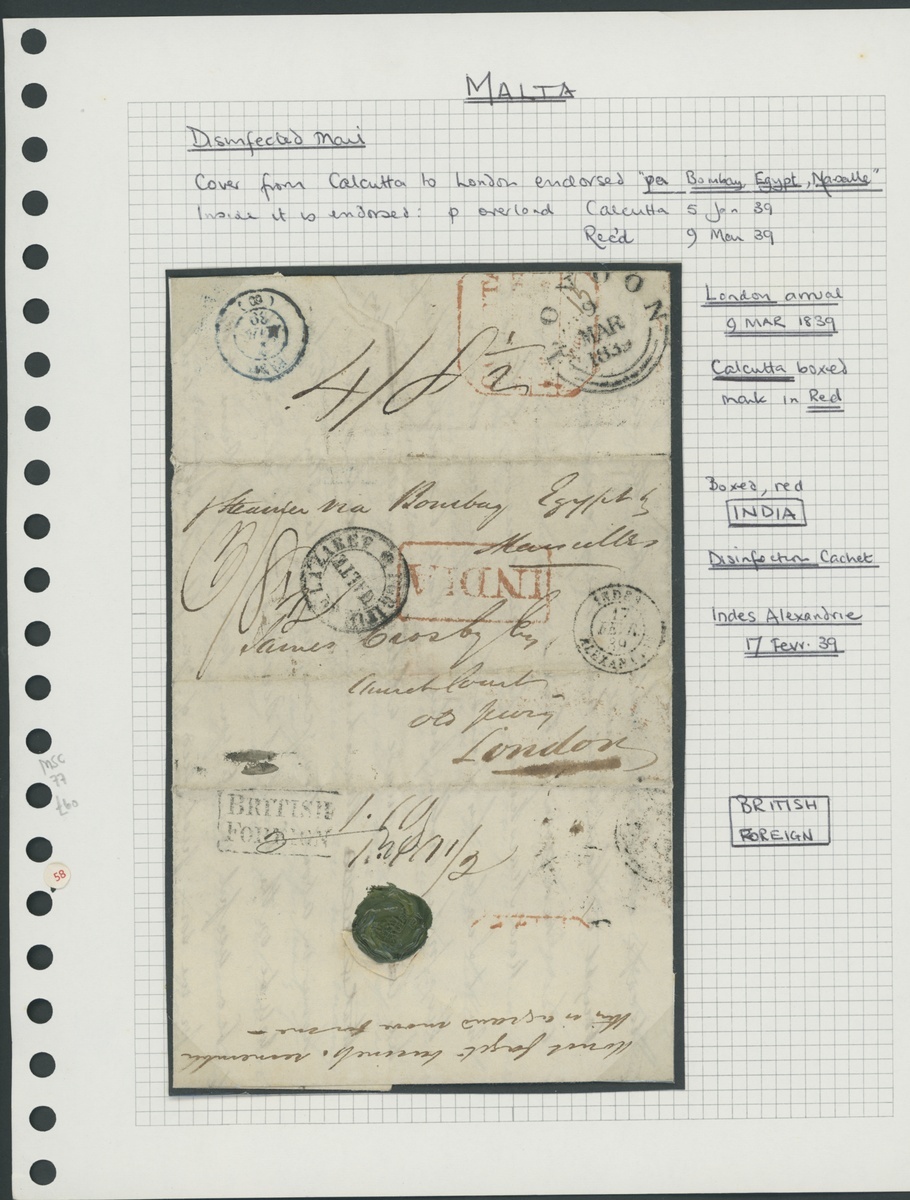 MALTA
Disinfected Mail
Cover from Calcutta to London endorsed "per Bombay, Egypt, Marseille"
Inside it is endorsed: p overland Calcutta 5 Jan 39
Rec'd 9 Mar 39
London arrival
9 MAR 1839
Calcutta boxed
mark in Red
Boxed, red
INDIA
Disinfection Cachet
Indes Alexandrie
17 Fevr. 39
BRITISH
FOREIGN
LONDON
9
MAR
1839
4/8
p Steamer via Bombay Egypt &
Marseilles
INDIA
LAZARET
MALTE
INDES
17
ALEXAN
James Crosby Esq
Church Court
Old Jewry
London
BRITISH
FOREIGN
do not forget remember
this is a grand move for me
MSC
77
£60
58